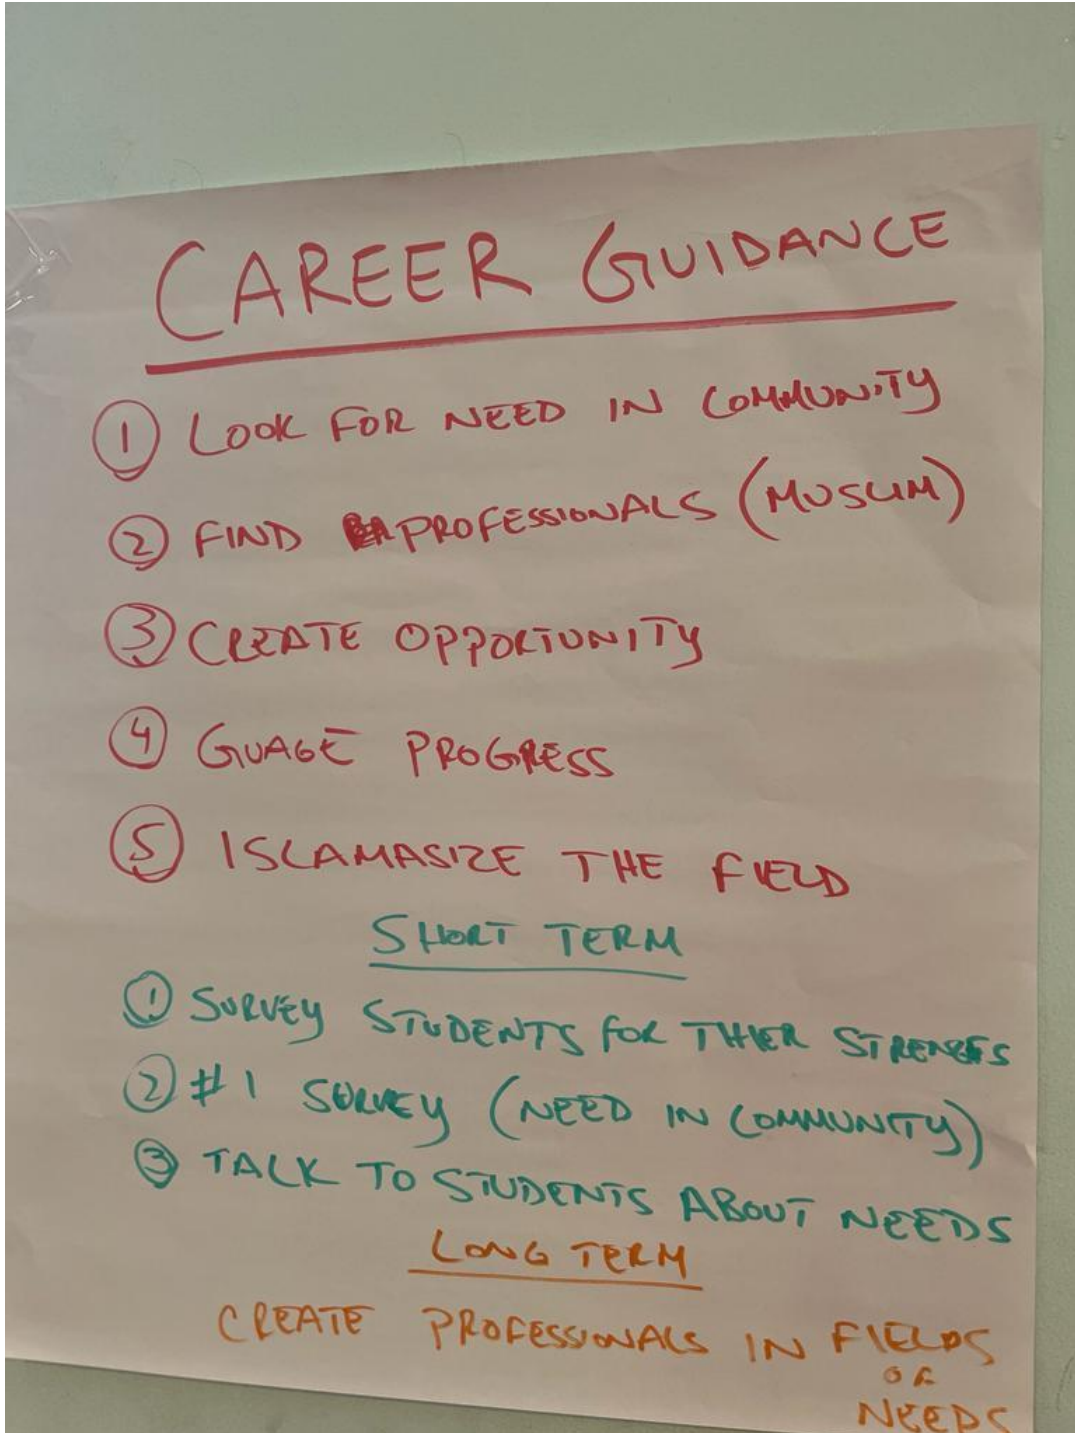 CAREER GUIDANCE
1 LOOK FOR NEED IN COMMUNITY
2 FIND PROFESSIONALS (MUSLIM)
3 CREATE OPPORTUNITY
4 GUAGE PROGRESS
5 ISLAMASIZE THE FIELD
SHORT TERM
1 SURVEY STUDENTS FOR THIER
2 #1 SURVEY (NEED IN COMMUNITY)
3 TALK TO STUDENTS ABOUT NEEDS
LONG TERM
CREATE PROFESSIONALS IN FIELDS
OF
NEEDS